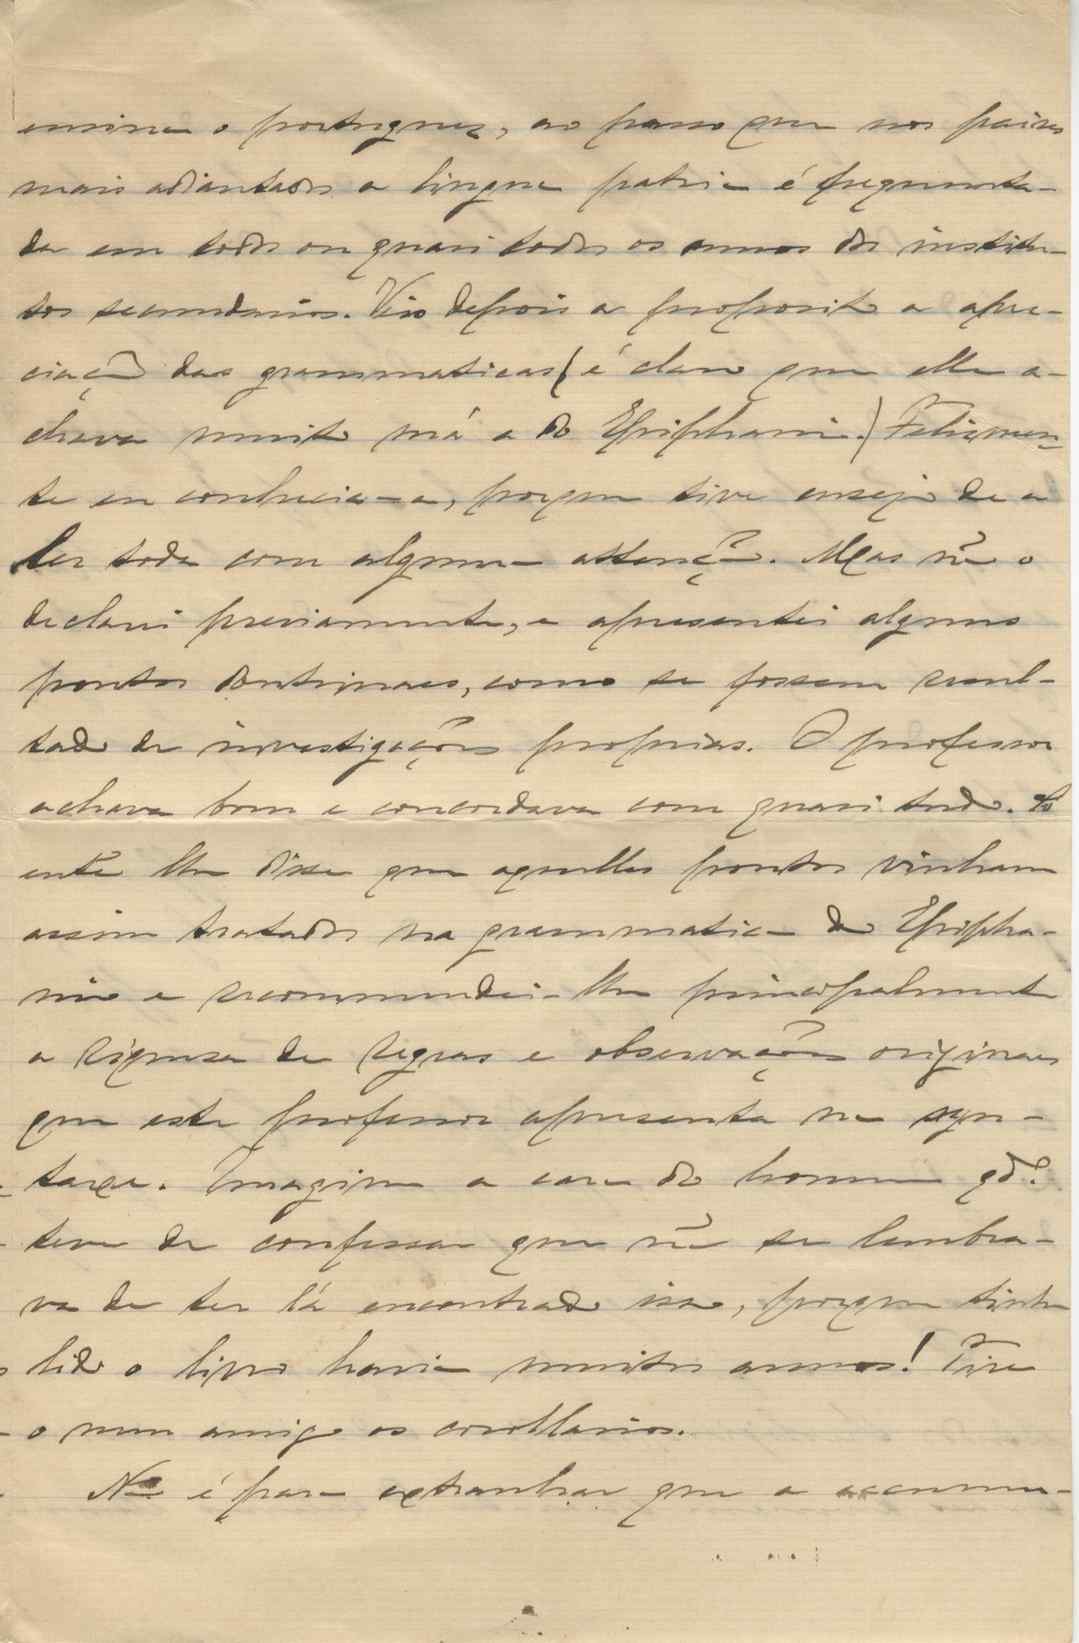 ensina o portuguez, ao passo que nos paises
mais adiantados a lingua patria é frequenta-
da em todos ou quasi todos os annos dos institu-
tos secundarios. Veio depois a proposito a apre-
ciação das grammaticas (é claro que elle a-
chava muito má a do Epiphanio.) Felizmen-
te eu conhecia-a, porque tive ensejo de a
ler toda com alguma attenção. Mas não o
declarei previamente, e apresentei alguns
pontos doutrinaes, como se fossem resul-
tado de investigações proprias. O professor
achava bom e concordava com quasi tudo. Eu
então lhe disse que aquelles pontos vinham
assim tratados na grammatica do Epipha-
nio e recommendei-lhe principalmente
a riqueza de regras e observações originaes
que este professor apresenta na syn-
taxe. Imagine a cara do homem qdo.
teve de confessar que não se lembra-
va de ter lá encontrado isso, porque tinha
lido o livro havia muitos annos! Tire
o meu amigo os corollarios.
Não é para extranhar que a accumu-